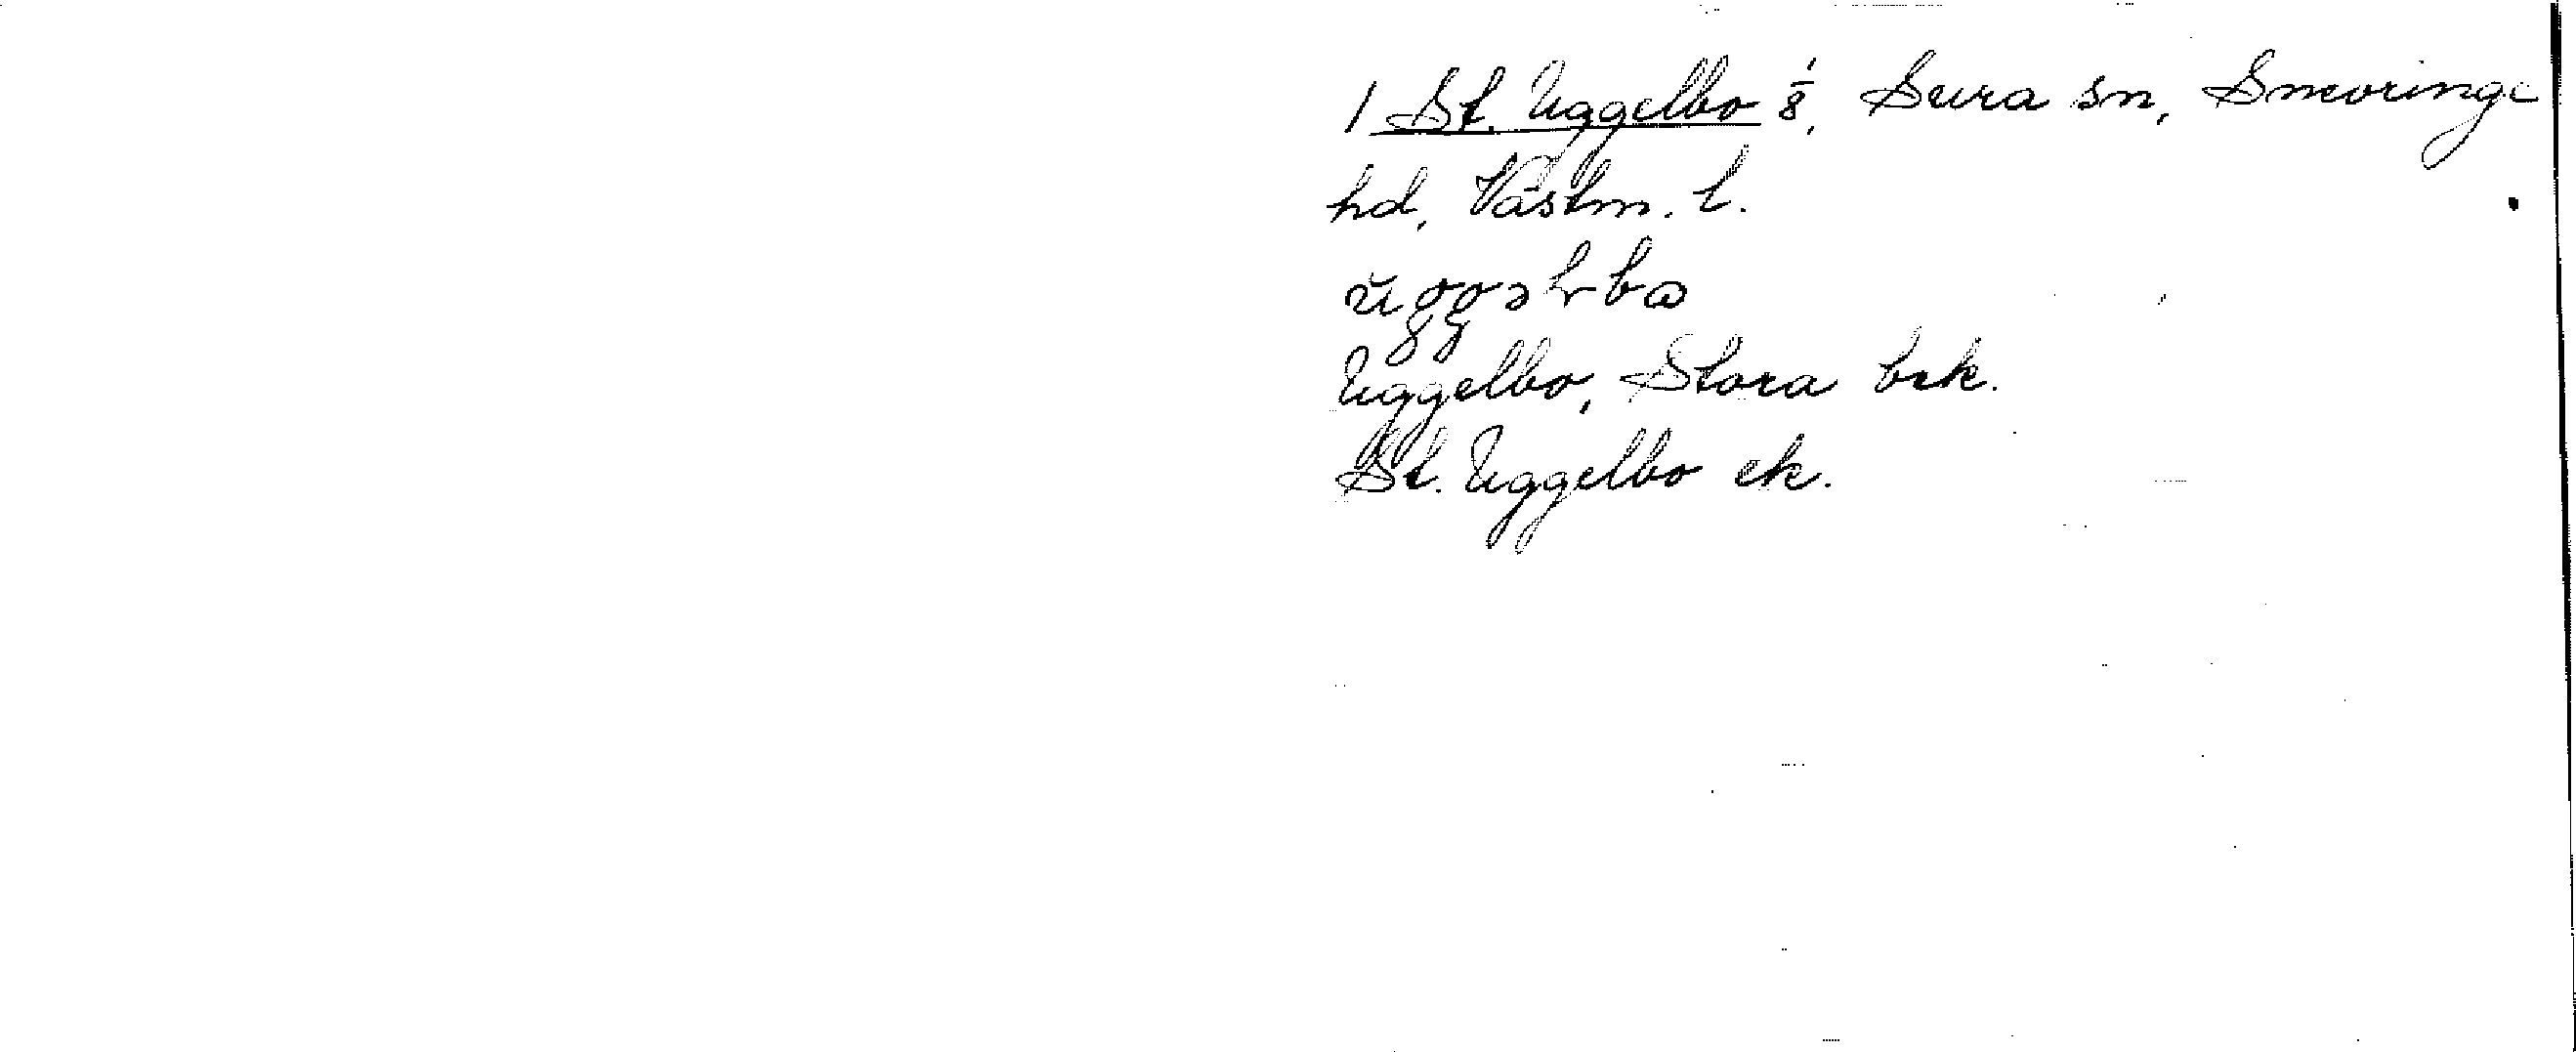 1 St. Uggelbo 1/8, Sura sn, Snevringe
hd, Västm. l.
Uggelbo, Stora brk.
St. Uggelbo ek.